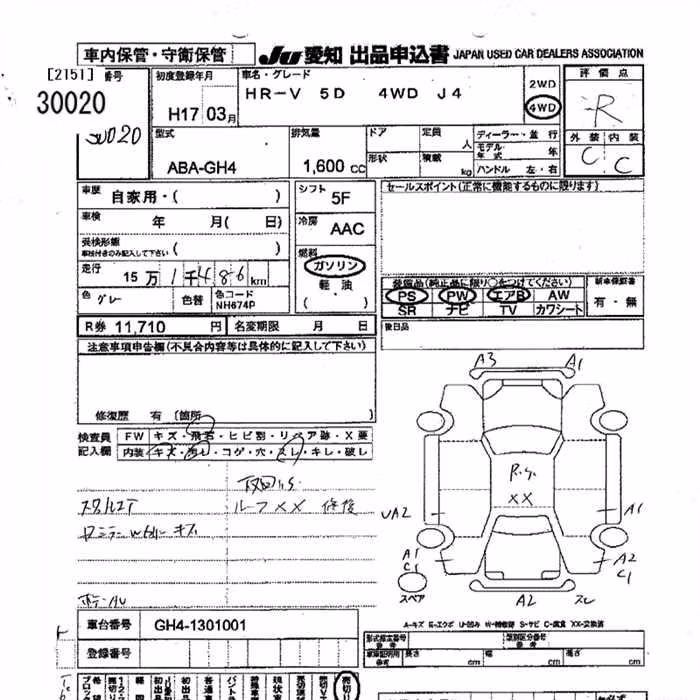 車内保管・守衛保管
JU 愛知 出品申込書 JAPAN USED CAR DEALERS ASSOCIATION
[2151] 番号
30020
30020
初度登録年月
H17 03月
車名・グレード
HR-V 5D 4WD J4
2WD
4WD
評価点
R
外装 内装
C C
型式
ABA-GH4
排気量
1,600 cc
ドア
定員 人
形状
積載 kg
ディーラー・並行
モデル年式 年
ハンドル 左・右
車歴 自家用・( )
車検 年 月( 日)
受検形態
車検付きのみ記入して下さい ( )
走行 15万 1千486 km
色 グレー
色替
色コード
NH674P
シフト 5F
冷房 AAC
燃料
ガソリン
軽・油
( )
セールスポイント(正常に機能するものに限ります)
装備品(純正品に限り○をつけてください)
PS PW エアB AW
SR ナビ TV カワシート
新車保証書
有・無
R券 11,710 円
名変期限 月 日
後日品
注意事項申告欄(不具合内容等は具体的に記入して下さい)
修復歴 有 〔箇所 〕
検査員
記入欄
FW キズ・飛石・ヒビ割・リペア跡・X要
内装 キズ・汚レ・コゲ・穴・スレ・キレ・破レ
ルーフXX 修復
A3 A1
R.S.
XX
UA2 A1
A1
C1
A2
C1
スペア
A2
スレ
A-キズ E-エクボ U-凹み W-補修跡 S-サビ C-腐食 XX-交換済
車台番号 GH4-1301001
登録番号
形式指定番号
参考
類別区分番号
参考
車庫証明用
参考
長さ cm
幅 cm
高さ cm